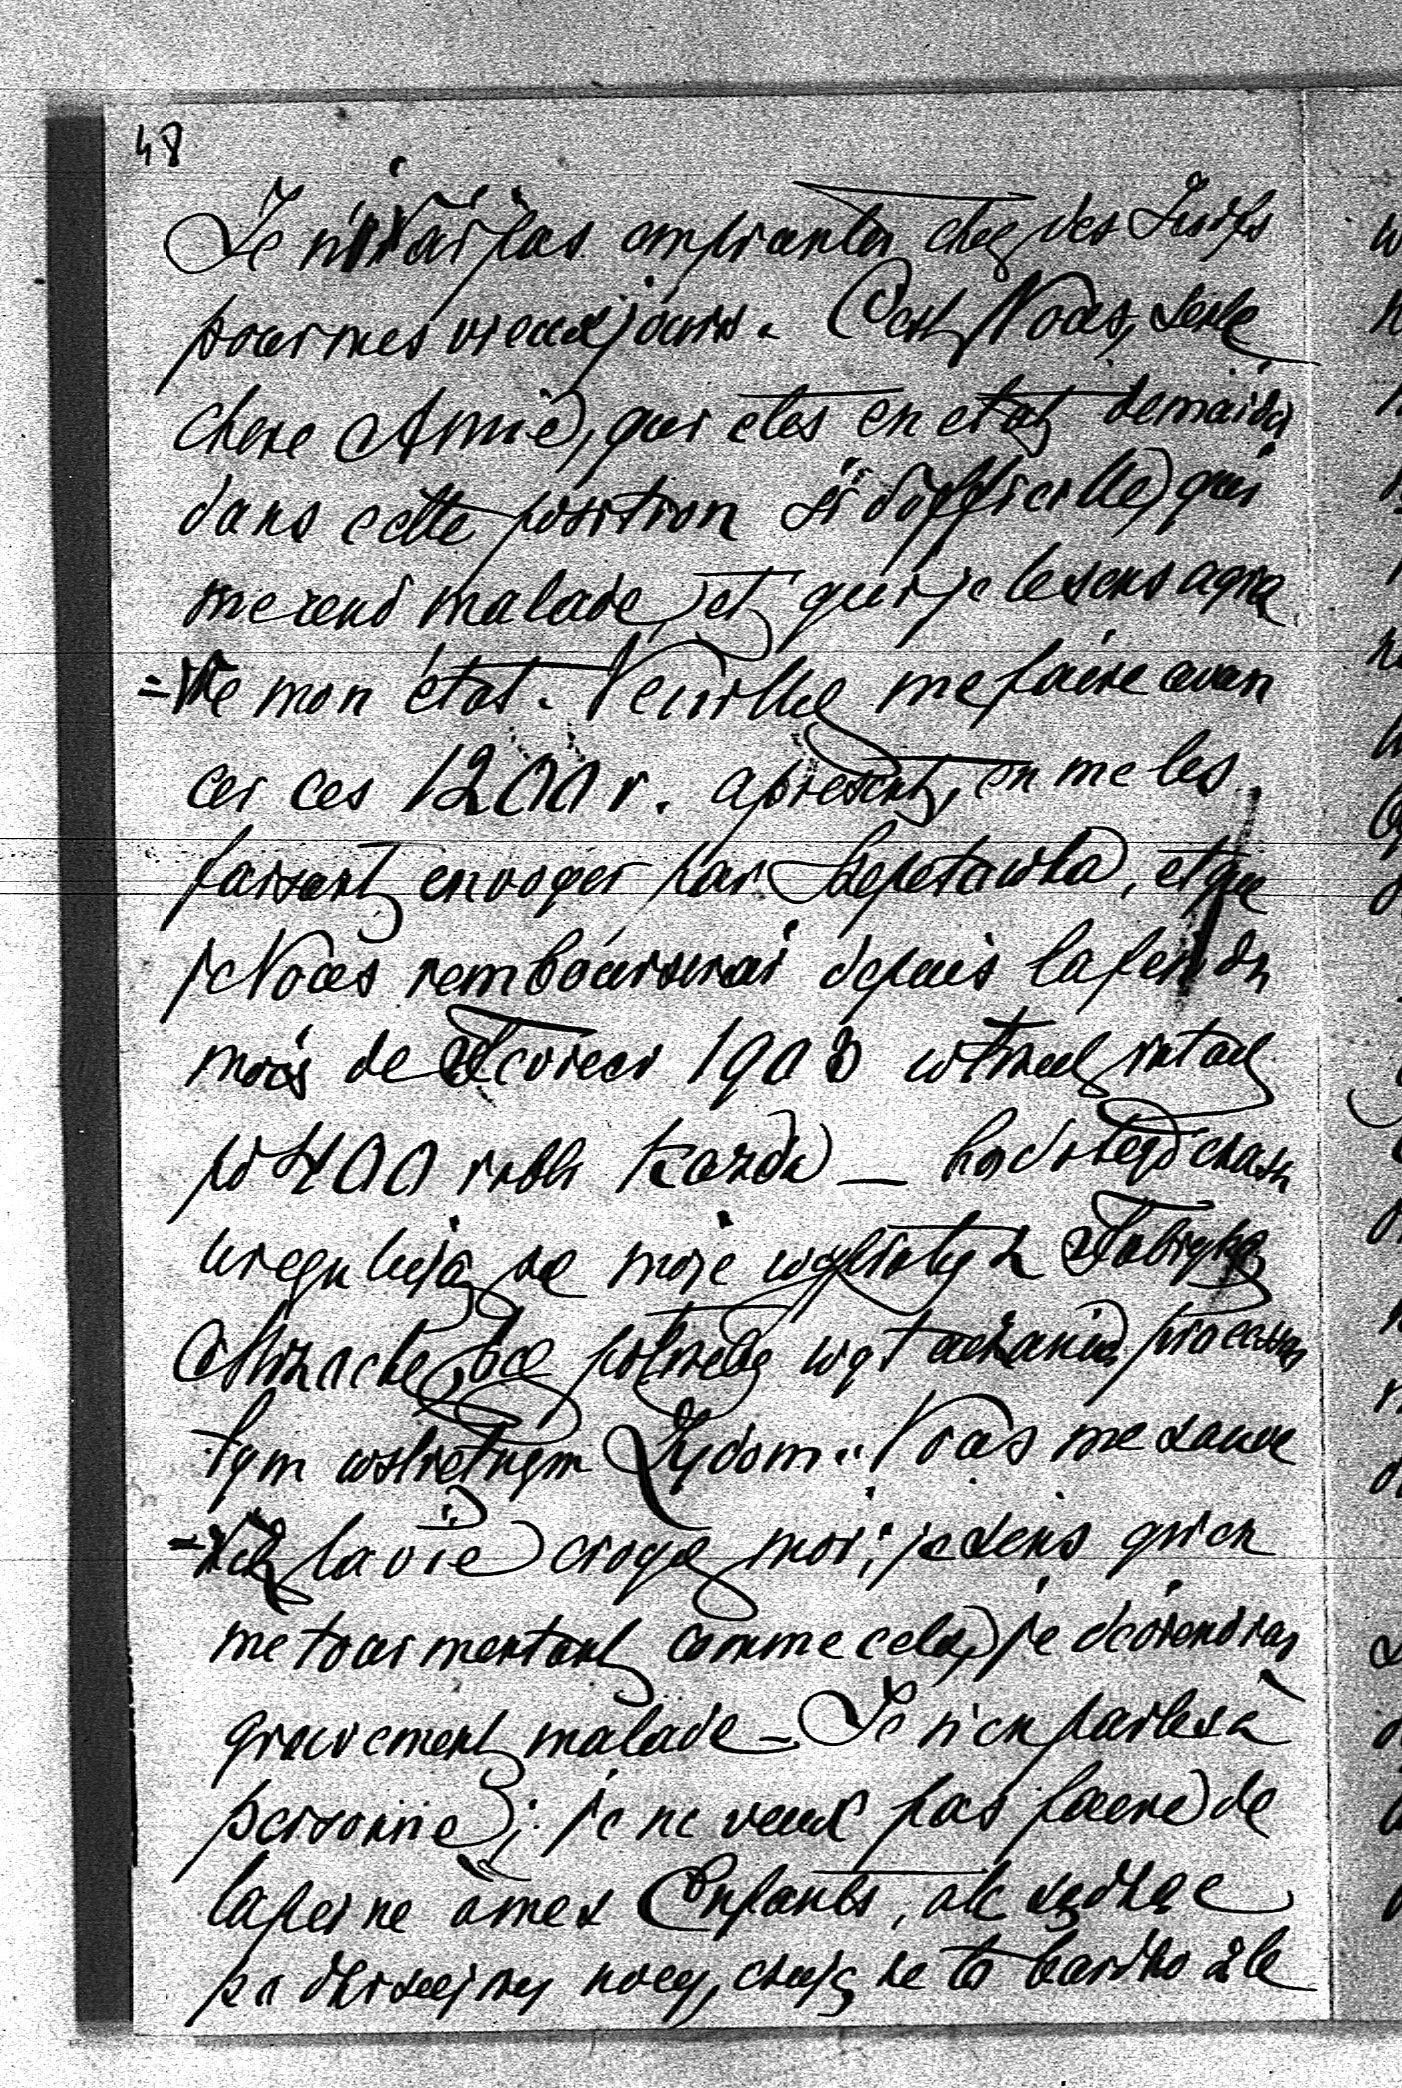 48
Je n'irai pas emprunter chez des Juifs
pour mes vieux jours. C'est Vous, seule
chere Amie, qui etes en etat de m'aider
dans cette position si difficille, qui
me rend malade, et qui je le sens agra
=ve mon état. Veuillez me faire avan
cer ces 1200 r. apresent, en me les
faisant envoyer par Szepetowka, et que
je Vous rembourserai depuis la fin du
mois de Fevrier 1903 w trzech ratach
po 400 rubli każda — bo do tego czasu
ureguluja się moje wypłaty z Fabryką
bez potrzeby wytaczania processu
tym wstretnym Żydom.. Vous me sauve
=rez la vie croyez moi; je sens qu'en
me tourmentant comme cela, je deviendrai
gravement malade — Je n'en parle à
personne; je ne veux pas faire de
la peine à mes Enfants, ale sądzę
po dzisiejszej nocy, czuję że to bardzo źle